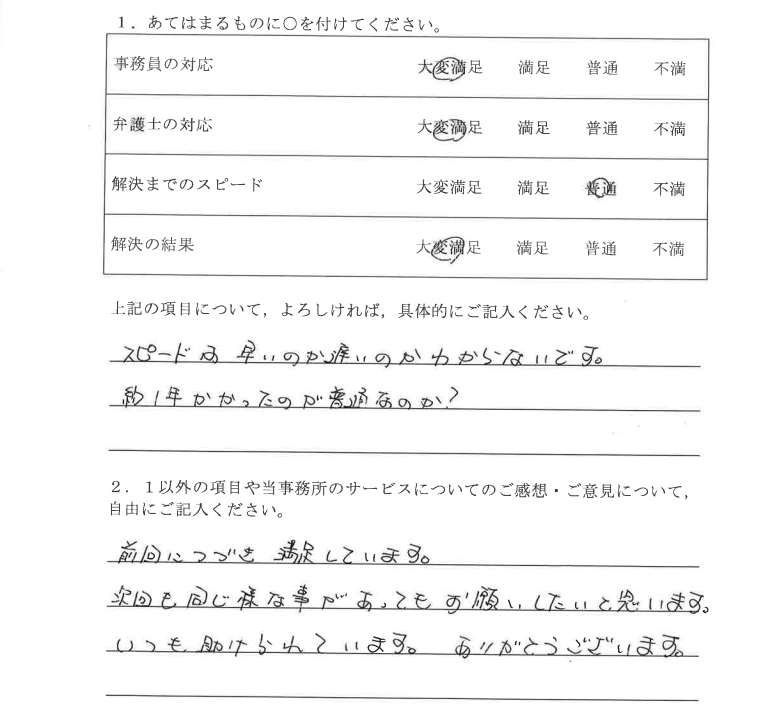 １．あてはまるものに○を付けてください。
事務員の対応 大変満足 満足 普通 不満
弁護士の対応 大変満足 満足 普通 不満
解決までのスピード 大変満足 満足 普通 不満
解決の結果 大変満足 満足 普通 不満
上記の項目について，よろしければ，具体的にご記入ください。
スピードは早いのか遅いのかわからないです。
約1年かかったのが普通なのか?
２．１以外の項目や当事務所のサービスについてのご感想・ご意見について，
自由にご記入ください。
前回につづき満足しています。
次回も同じ様な事があってもお願いしたいと思います。
いつも助けられています。ありがとうございます。